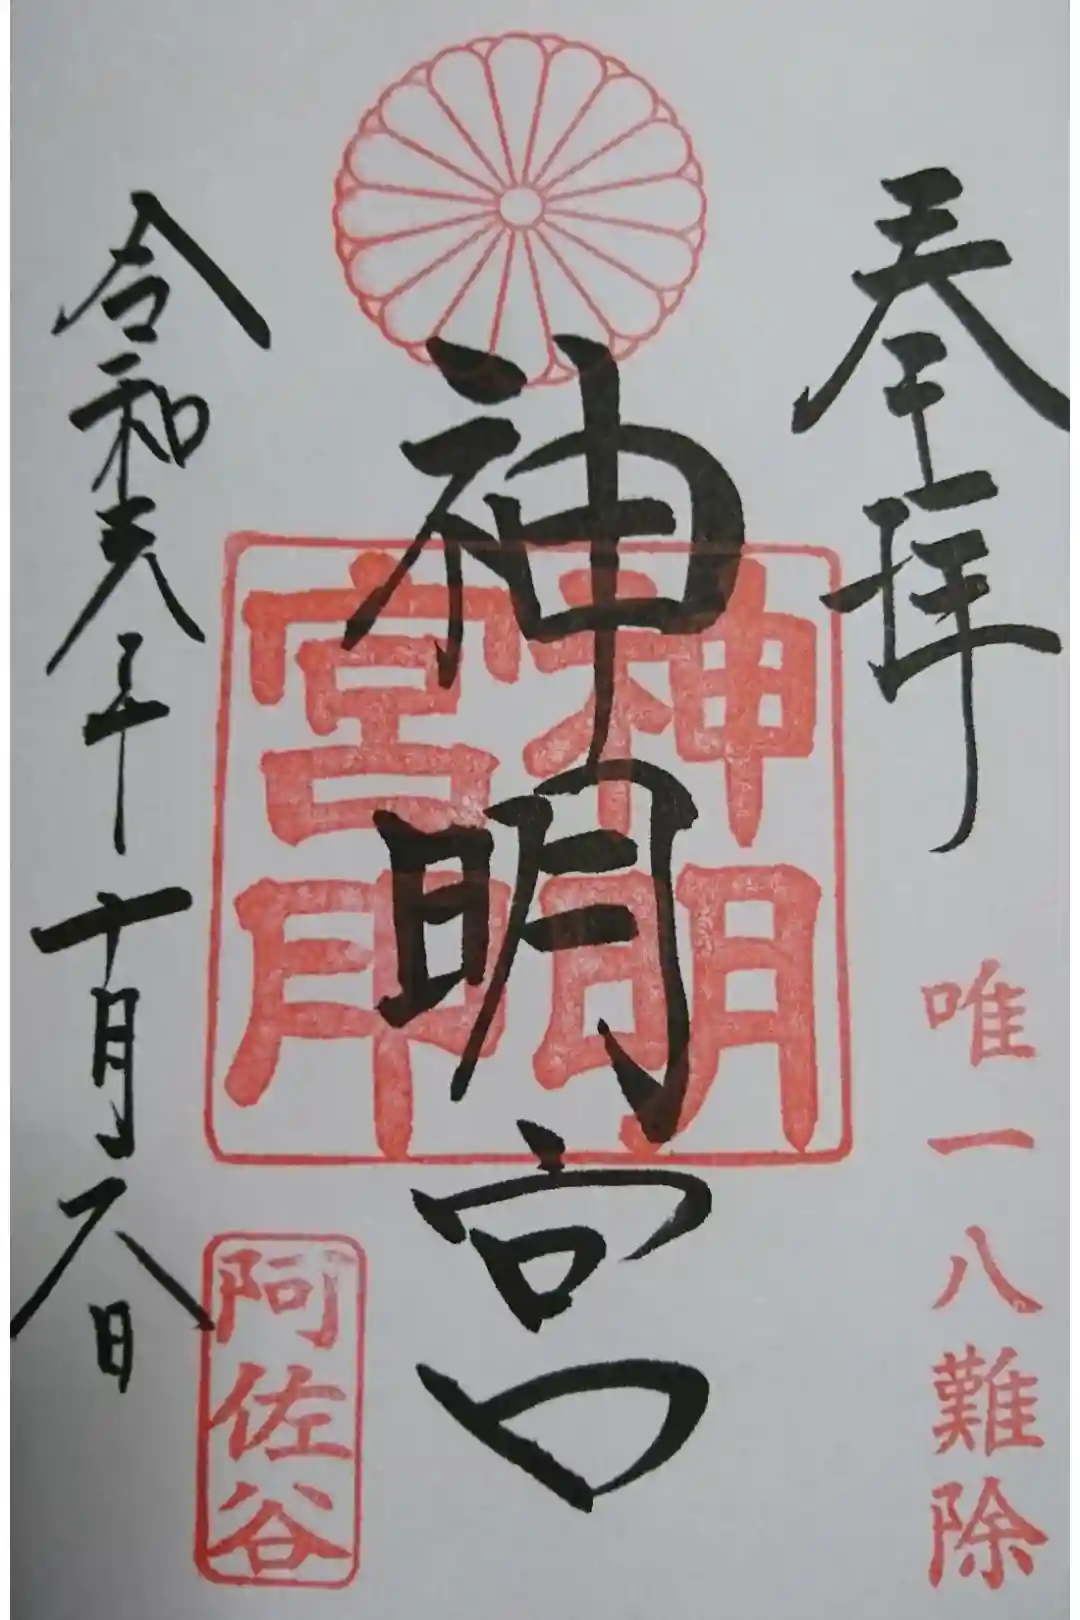 奉拝
唯一八難除
神明宮
神明
宮印
令和六年十月八日
阿佐谷